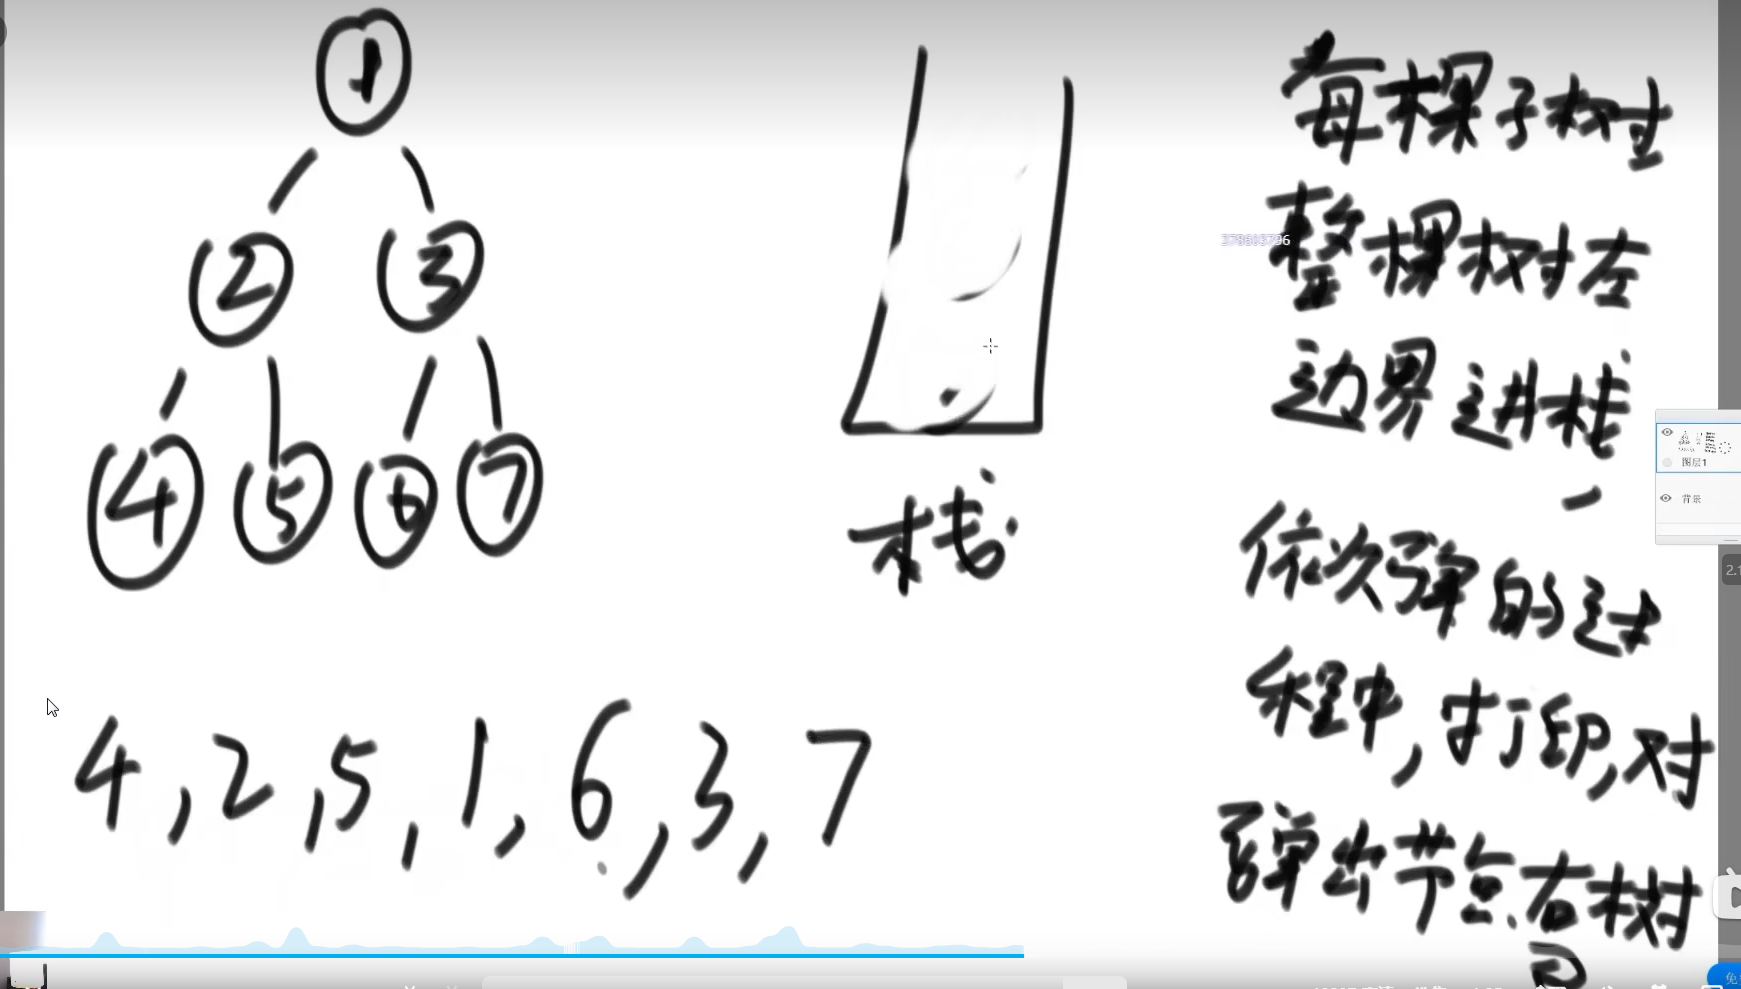 1
2 3
4 5 6 7
栈
4,2,5,1,6,3,7
每棵子树
整棵树左
边界进栈,
依次弹的过
程中,打印,对
弹出节点右树
图层1
背景
2.1
免